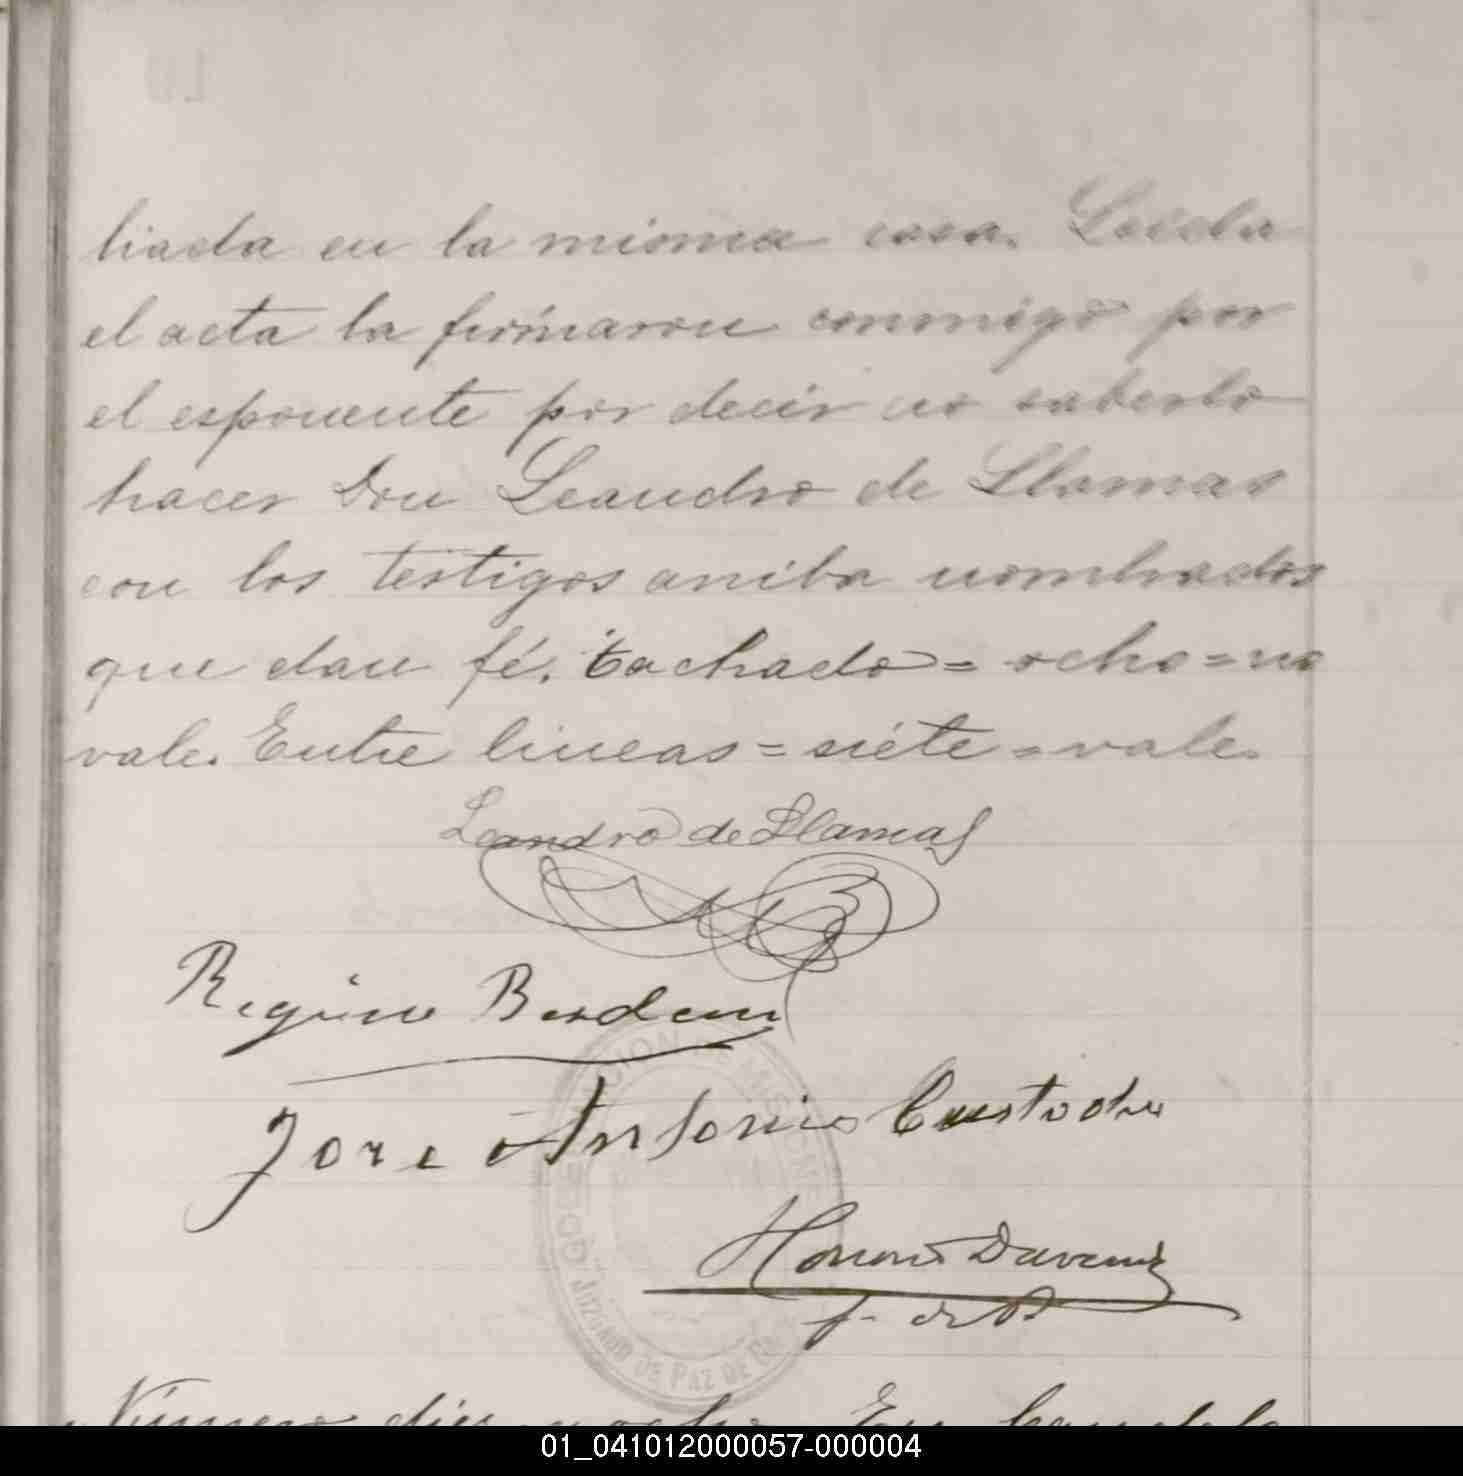 liada en la misma casa. Leida
el acta la firmaron conmigo por
el esponente por decir no saberlo
hacer Don Leandro de Llamas
con los testigos arriba nombrados
que dan fé. Tachado = ocho = no
vale. Entre lineas = siete = vale.
Leandro de Llamas
Regino
Jose Antonio Custodio
J. de P.
JUZGADO DE PAZ DE
Número diez y ocho. En Candela
01_041012000057-000004